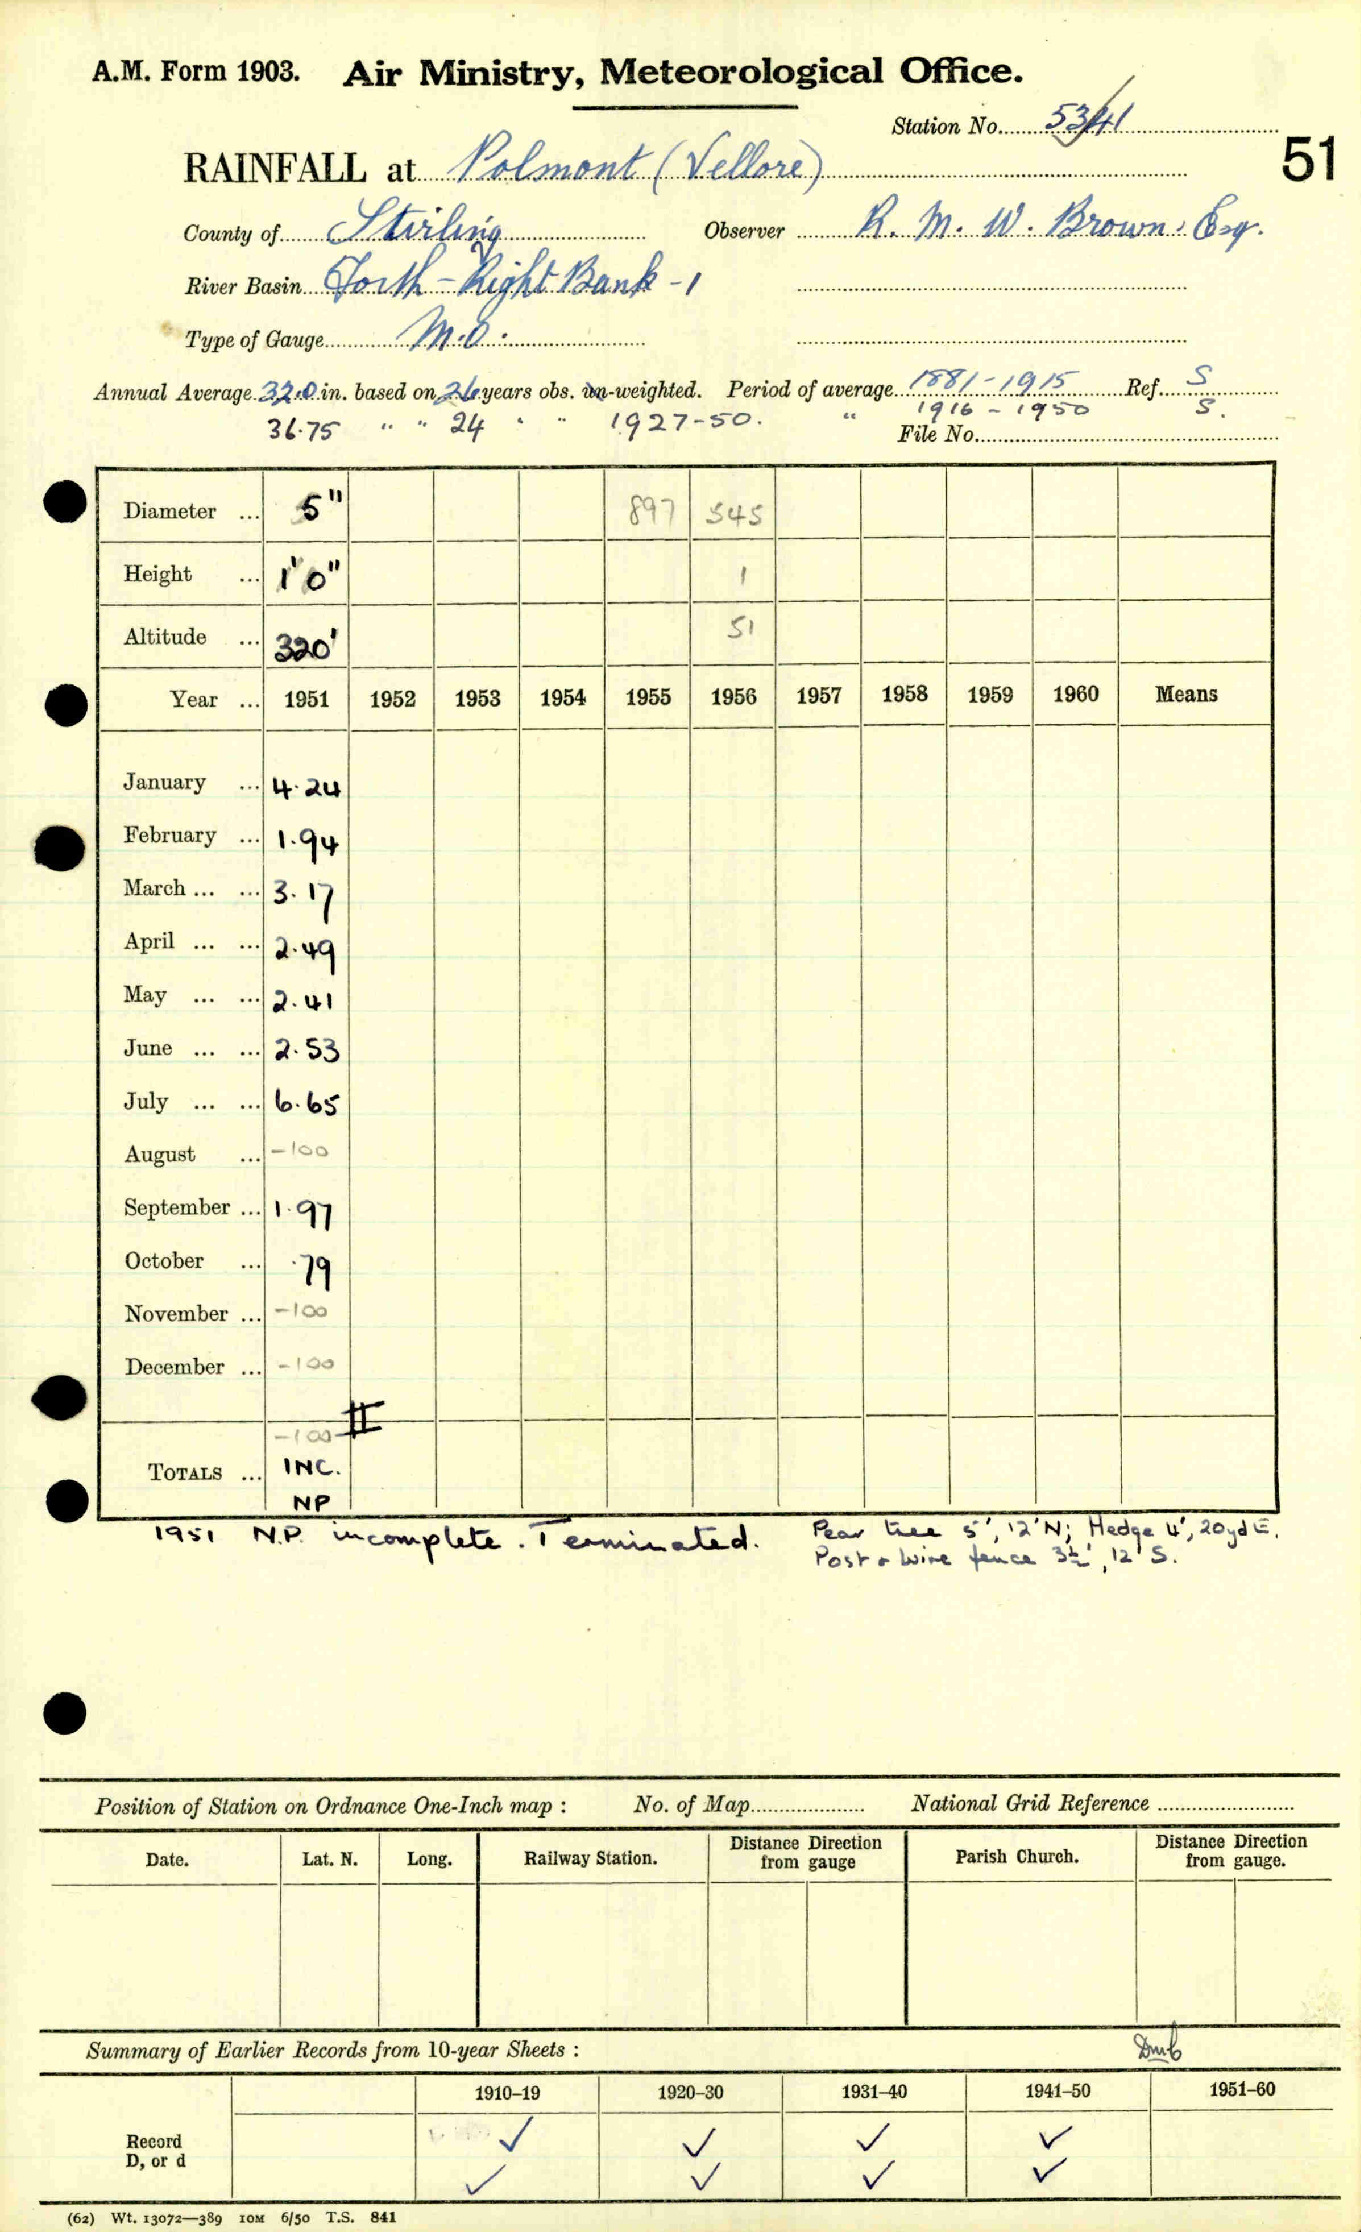 A.M. Form 1903. Air Ministry, Meteorological Office.
Station No. 5341
51
RAINFALL at Polmont (Vellore)
County of Stirling Observer R. M. W. Brown. Esq.
River Basin Forth - Right Bank - 1
Type of Gauge M.O.
Annual Average 32.0 in. based on 26 years obs. un-weighted. Period of average 1881-1915 Ref. S
36.75 " " 24 " " 1927-50. " 1916-1950 S.
File No.
Diameter ... 5" 897 545
Height ... 1'0" 1
Altitude ... 320' 51
Year ... 1951 1952 1953 1954 1955 1956 1957 1958 1959 1960 Means
January ... 4.24
February ... 1.94
March ... ... 3.17
April ... ... 2.49
May ... ... 2.41
June ... ... 2.53
July ... ... 6.65
August ... -100
September ... 1.97
October ... .79
November ... -100
December ... -100
-100
TOTALS ... INC.
NP
1951 N.P. incomplete. Terminated. Pear tree 5', 12'N; Hedge 4', 20yd E.
Post & wire fence 3½', 12' S.
Position of Station on Ordnance One-Inch map : No. of Map National Grid Reference
Date. Lat. N. Long. Railway Station. Distance Direction from gauge Parish Church. Distance Direction from gauge.
Summary of Earlier Records from 10-year Sheets :
1910-19 1920-30 1931-40 1941-50 1951-60
Record ✓ ✓ ✓ ✓
D, or d ✓ ✓ ✓ ✓
(62) Wt. 13072—389 10M 6/50 T.S. 841